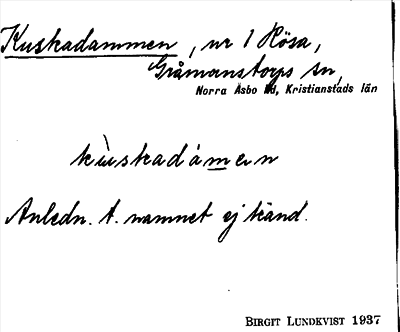 Kuskadammen, nr 1 Kösa,
Gråmanstorps sn,
Norra Åsbo hd, Kristianstads län
kùskadámen
Anledn. t. namnet ej känd.
BIRGIT LUNDKVIST 1937